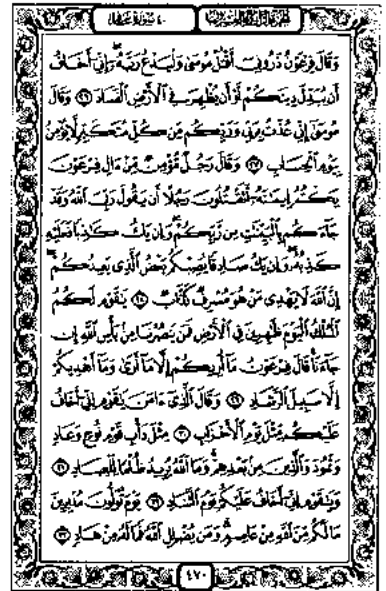 ٤٠ سورة غافر
وَقَالَ فِرْعَوْنُ ذَرُونِىٓ أَقْتُلْ مُوسَىٰ وَلْيَدْعُ رَبَّهُۥٓ إِنِّىٓ أَخَافُ
أَن يُبَدِّلَ دِينَكُمْ أَوْ أَن يُظْهِرَ فِى ٱلْأَرْضِ ٱلْفَسَادَ ٢٦ وَقَالَ
مُوسَىٰٓ إِنِّى عُذْتُ بِرَبِّى وَرَبِّكُم مِّن كُلِّ مُتَكَبِّرٍ لَّا يُؤْمِنُ
بِيَوْمِ ٱلْحِسَابِ ٢٧ وَقَالَ رَجُلٌ مُّؤْمِنٌ مِّنْ ءَالِ فِرْعَوْنَ
يَكْتُمُ إِيمَٰنَهُۥٓ أَتَقْتُلُونَ رَجُلًا أَن يَقُولَ رَبِّىَ ٱللَّهُ وَقَدْ
جَآءَكُم بِٱلْبَيِّنَٰتِ مِن رَّبِّكُمْ وَإِن يَكُ كَٰذِبًا فَعَلَيْهِ
كَذِبُهُۥ وَإِن يَكُ صَادِقًا يُصِبْكُم بَعْضُ ٱلَّذِى يَعِدُكُمْ
إِنَّ ٱللَّهَ لَا يَهْدِى مَنْ هُوَ مُسْرِفٌ كَذَّابٌ ٢٨ يَٰقَوْمِ لَكُمُ
ٱلْمُلْكُ ٱلْيَوْمَ ظَٰهِرِينَ فِى ٱلْأَرْضِ فَمَن يَنصُرُنَا مِنۢ بَأْسِ ٱللَّهِ إِن
جَآءَنَا قَالَ فِرْعَوْنُ مَآ أُرِيكُمْ إِلَّا مَآ أَرَىٰ وَمَآ أَهْدِيكُمْ
إِلَّا سَبِيلَ ٱلرَّشَادِ ٢٩ وَقَالَ ٱلَّذِىٓ ءَامَنَ يَٰقَوْمِ إِنِّىٓ أَخَافُ
عَلَيْكُم مِّثْلَ يَوْمِ ٱلْأَحْزَابِ ٣٠ مِثْلَ دَأْبِ قَوْمِ نُوحٍ وَعَادٍ
وَثَمُودَ وَٱلَّذِينَ مِنۢ بَعْدِهِمْ وَمَا ٱللَّهُ يُرِيدُ ظُلْمًا لِّلْعِبَادِ ٣١
وَيَٰقَوْمِ إِنِّىٓ أَخَافُ عَلَيْكُمْ يَوْمَ ٱلتَّنَادِ ٣٢ يَوْمَ تُوَلُّونَ مُدْبِرِينَ
مَا لَكُم مِّنَ ٱللَّهِ مِنْ عَاصِمٍ وَمَن يُضْلِلِ ٱللَّهُ فَمَا لَهُۥ مِنْ هَادٍ ٣٣
٤٧٠